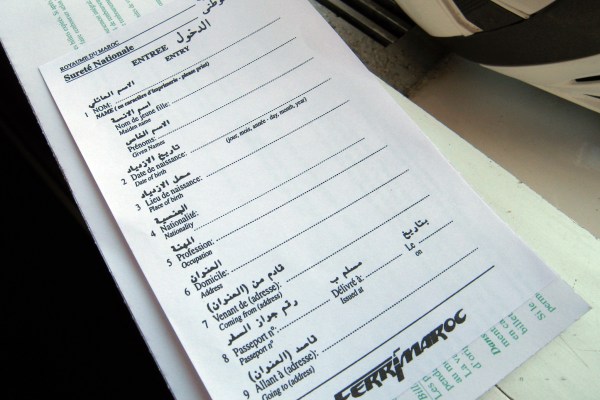 ROYAUME DU MAROC
Sureté Nationale
ENTREE الدخول
ENTRY
الاسم العائلي
1 NOM:
NAME (en caractère d'imprimerie - please print)
اسم الانسة
Nom de jeune fille:
Maiden name
الاسم الشخصي
Prénoms:
Given Names
تاريخ الازدياد
2 Date de naissance: (jour, mois, année - day, month, year)
Date of birth
محل الازدياد
3 Lieu de naissance:
Place of birth
الجنسية
4 Nationalité:
Nationality
المهنة
5 Profession:
Occupation
العنوان
6 Domicile:
Address
قادم من (العنوان)
7 Venant de (adresse):
Coming from (address)
رقم جواز السفر مسلم ب بتاريخ
8 Passeport n°: Délivré à: Le
Passeport n° Issued at on
قاصد (العنوان)
9 Allant à (adresse):
Going to (address)
FERRIMAROC
Si le
perm
billet
en ca
nent
Dans
d'ori
au m
La v
pend
Les p
Bill